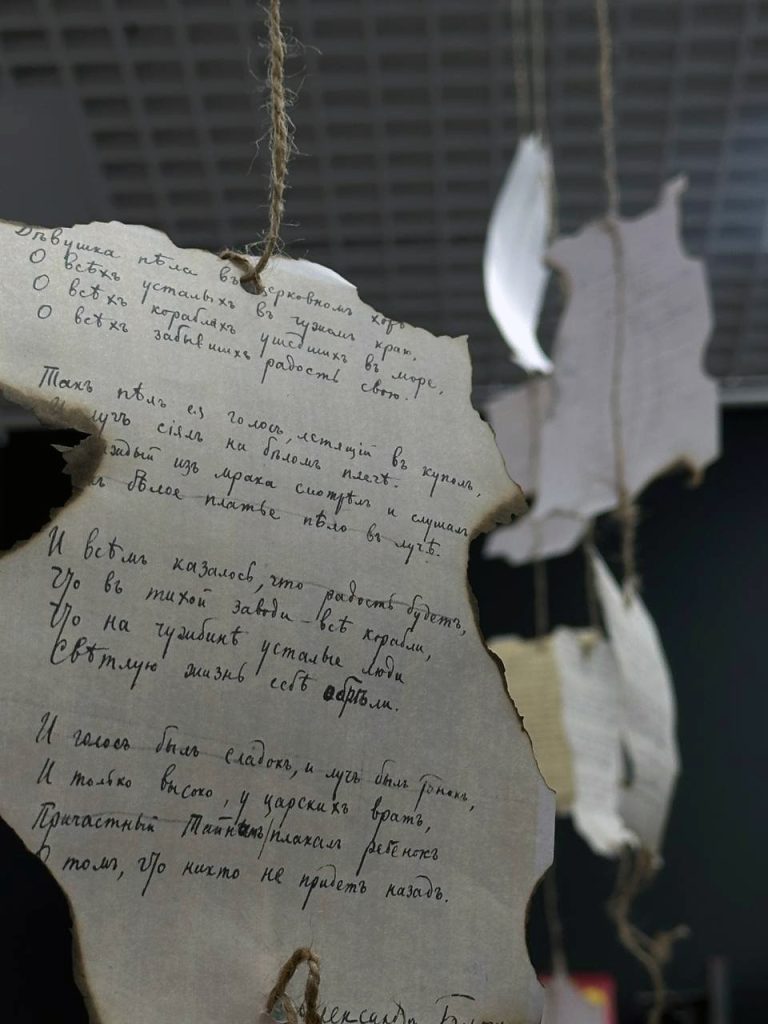 Дѣвушка пѣла въ церковномъ хорѣ
О всѣхъ усталыхъ въ чужомъ краю,
О всѣхъ корабляхъ ушедшихъ въ море,
О всѣхъ забывшихъ радость свою.
Такъ пѣлъ ея голосъ, летящій въ куполъ,
И лучъ сіялъ на бѣломъ плечѣ.
каждый изъ мрака смотрѣлъ и слушалъ
бѣлое платье пѣло въ лучѣ.
И всѣмъ казалось, что радость будетъ,
Что въ тихой заводи всѣ корабли,
Что на чужбинѣ усталые люди
Свѣтлую жизнь себѣ обрѣли.
И голосъ былъ сладокъ, и лучъ былъ тонокъ,
И только высоко, у царскихъ вратъ,
Причастный Тайнамъ, плакалъ ребенокъ
О томъ, что никто не придетъ назадъ.
Александръ Блокъ